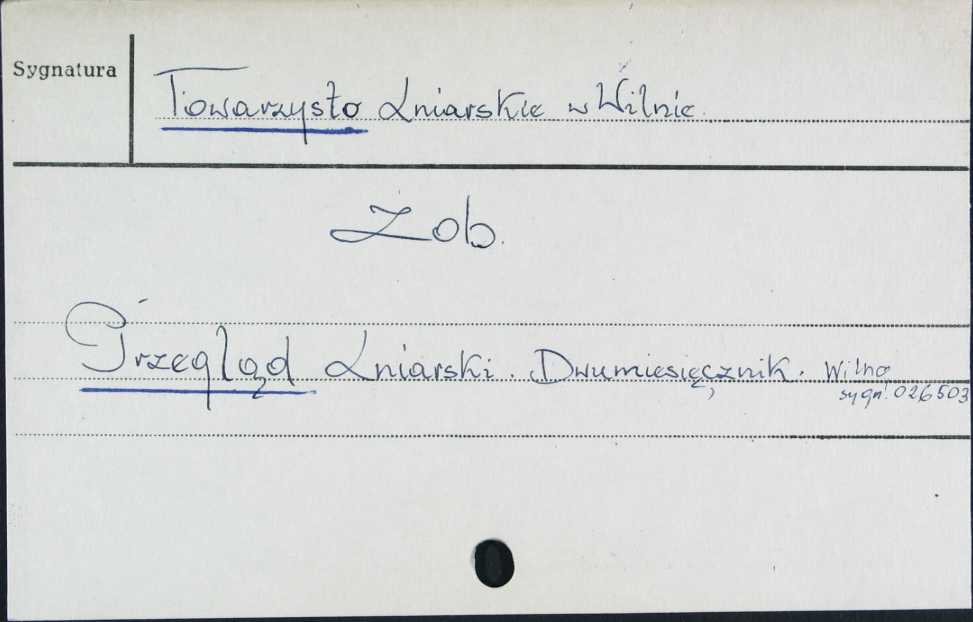 Sygnatura
Towarzysto Lniarskie w Wilnie.
Zob.
Przegląd Lniarski. Dwumiesięcznik. Wilno
sygn. 026503